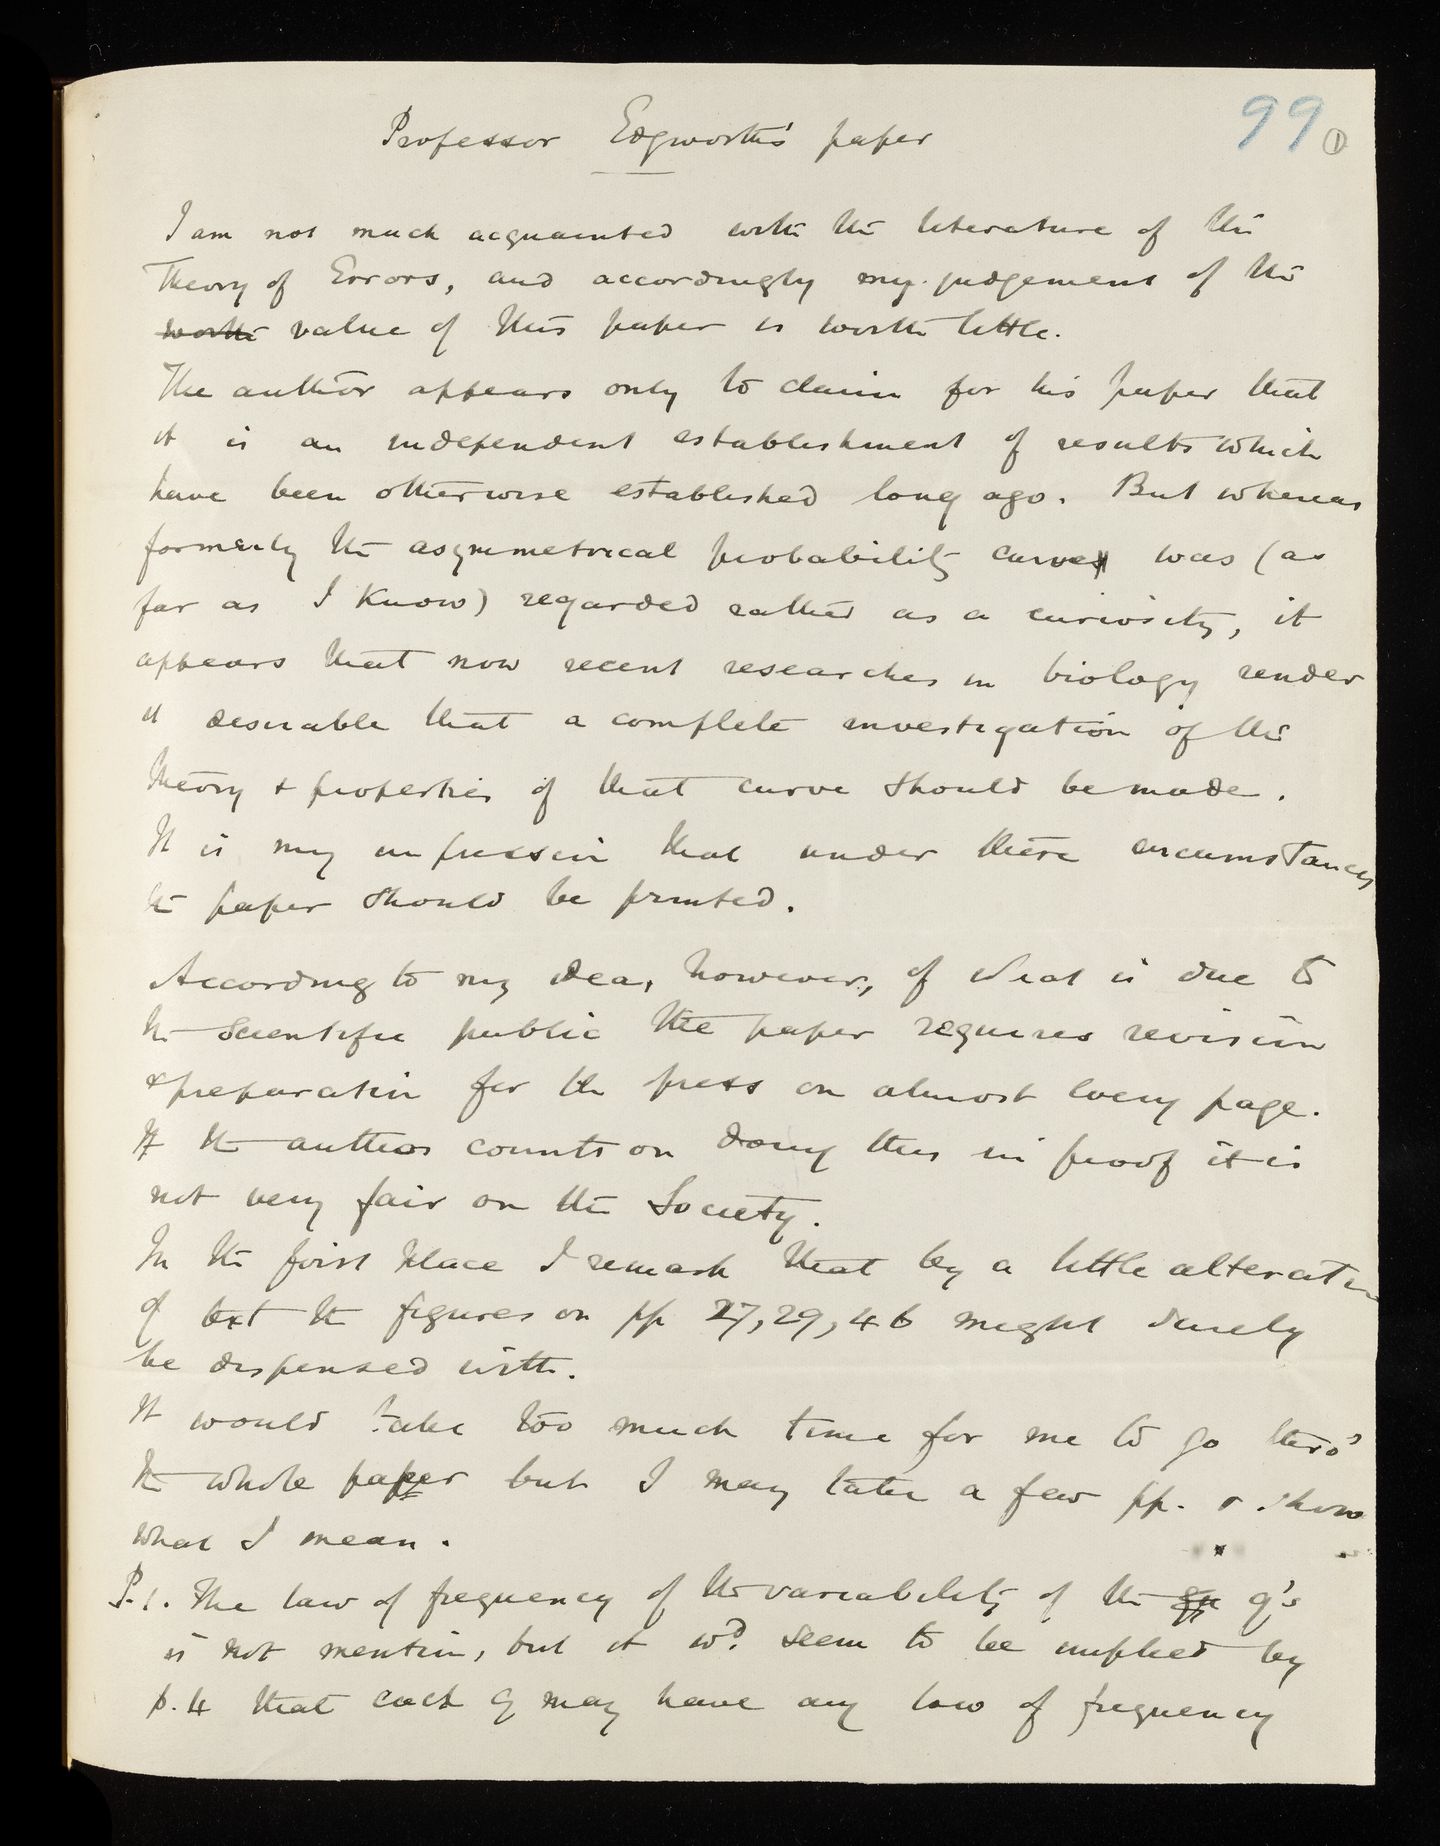 99 ①
Professor Edgworth's paper
I am not much acquainted with the literature of the
Theory of Errors, and accordingly my judgement of the
worth value of this paper is worth little.
The author appears only to claim for his paper that
it is an independent establishment of results which
have been otherwise established long ago. But whereas
formerly the asymmetrical probability curve was (as
far as I know) regarded rather as a curiosity, it
appears that now recent researches in biology render
it desirable that a complete investigation of the
theory & properties of that curve should be made.
It is my impression that under these circumstances
the paper should be printed.
According to my idea, however, of what is due to
the scientific public the paper requires revision
& preparation for the press on almost every page.
If the author counts on doing this in proof it is
not very fair on the Society.
In the first place I remark that by a little alteration
of text the figures on pp 27, 29, 46 might surely
be dispensed with.
It would take too much time for me to go thro'
the whole paper but I may take a few pp. & show
what I mean.
P. 1. The law of frequency of the variability of the q's
is not mention, but it wd. seem to be implied by
p. 4 that each q may have any law of frequency